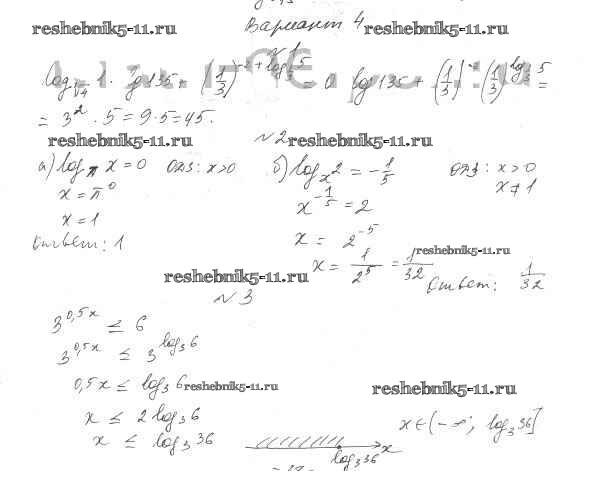 Вариант 4
reshebnik5-11.ru reshebnik5-11.ru
№1
lg 135 + (1/3)^(-2 + log 5) = 0 · lg 135 + (1/3)^(-2) · (1/3)^(log 5) =
= 3² · 5 = 9 · 5 = 45.
reshebnik5-11.ru №2 reshebnik5-11.ru
а) log_π x = 0 ОДЗ: x > 0
x = π⁰
x = 1
Ответ: 1
б) log_x 2 = -1/5 ОДЗ: x > 0
x ≠ 1
x^(-1/5) = 2
x = 2^(-5)
x = 1/2⁵ = 1/32
reshebnik5-11.ru
Ответ: 1/32
reshebnik5-11.ru
№3
3^(0,5x) ≤ 6
3^(0,5x) ≤ 3^(log₃6)
0,5x ≤ log₃6
reshebnik5-11.ru reshebnik5-11.ru
x ≤ 2log₃6
x ≤ log₃36
x
log₃36
x ∈ (-∞; log₃36]